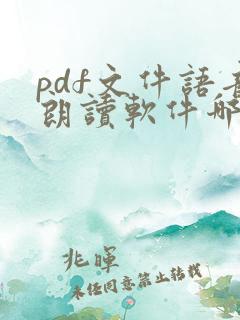 pdf文件語音
朗讀軟件哪
兆暉
未任同意禁止轉載